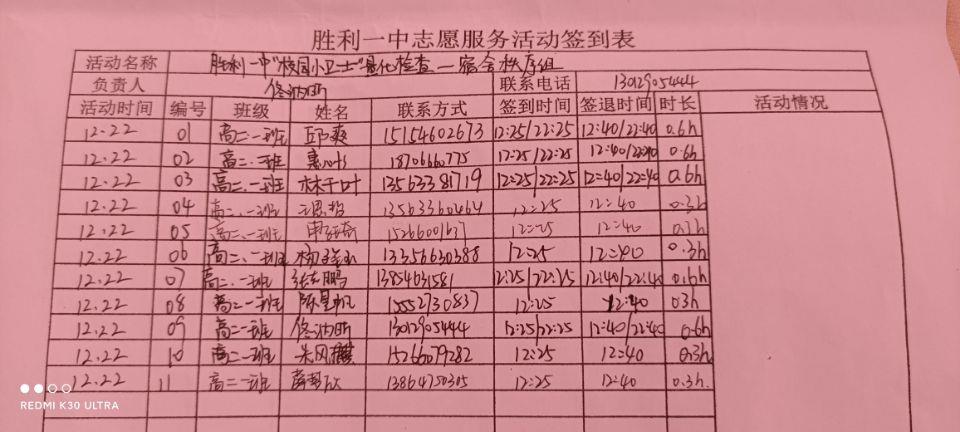 胜利一中志愿服务活动签到表
活动名称 胜利一中"校园小卫士"量化检查—宿舍秩序组
负责人 联系电话 13012905444
活动时间 编号 班级 姓名 联系方式 签到时间 签退时间 时长 活动情况
12.22 01 高二.一班 邱爽 15154602673 12:25/22:25 12:40/22:40 0.6h
12.22 02 高二.一班 18706660775 12:25/22:25 12:40/22:40 0.6h
12.22 03 高二.一班 林千叶 13563381719 12:25/22:25 12:40/22:40 0.6h
12.22 04 高二.一班 13563360464 12:25 12:40 0.3h
12.22 05 高二.一班 12:25 12:40 0.3h
12.22 06 高二.一班 13356630388 12:25 12:40 0.3h
12.22 07 高二.一班 张东鹏 13854631581 12:25/22:25 12:40/22:40 0.6h
12.22 08 高二一班 15552730837 12:25 12:40 0.3h
12.22 09 高二一班 13012905444 12:25/22:25 12:40/22:40 0.6h
12.22 10 高二一班 15266079282 12:25 12:40 0.3h
12.22 11 高二一班 13864750305 12:25 12:40 0.3h.
REDMI K30 ULTRA